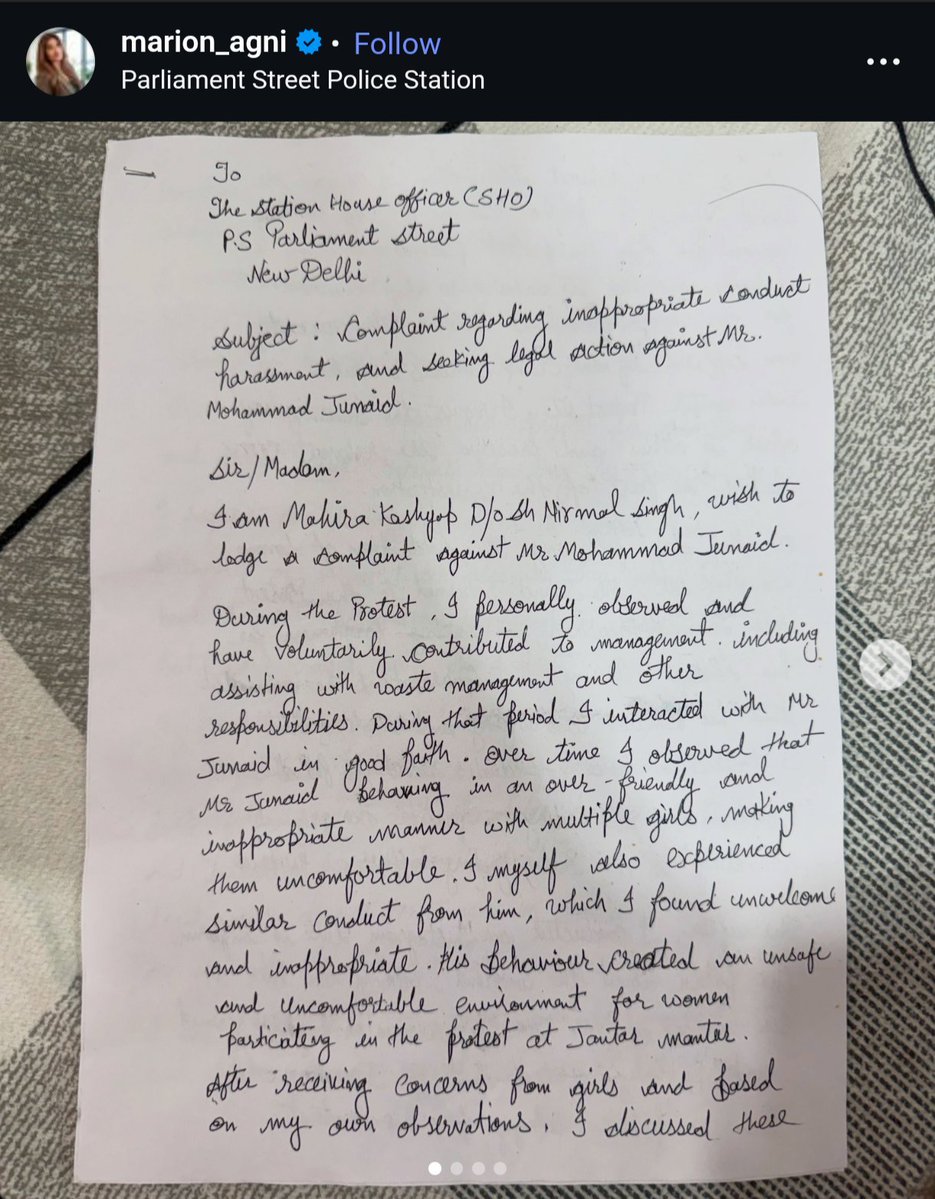 marion_agni • Follow
Parliament Street Police Station
To
The Station House officer (SHO)
P.S Parliament street
New Delhi
Subject : Complaint regarding inappropriate conduct
harassment, and seeking legal action against Mr.
Mohammad Junaid.
Sir/Madam,
I am Mahira Kashyap D/o Sh Nirmal Singh, wish to
lodge a complaint against Mr Mohammad Junaid.
During the Protest, I personally observed and
have voluntarily contributed to management. including
assisting with waste management and other
responsibilities. During that period I interacted with Mr
Junaid in good faith. over time I observed that
Mr Junaid behaving in an over-friendly and
inappropriate manner with multiple girls, making
them uncomfortable. I myself also experienced
similar conduct from him, which I found unwelcome
and inappropriate. His behaviour created an unsafe
and uncomfortable environment for women
particiateng in the protest at Jantar mantar.
After receiving concerns from girls and based
on my own observations, I discussed these